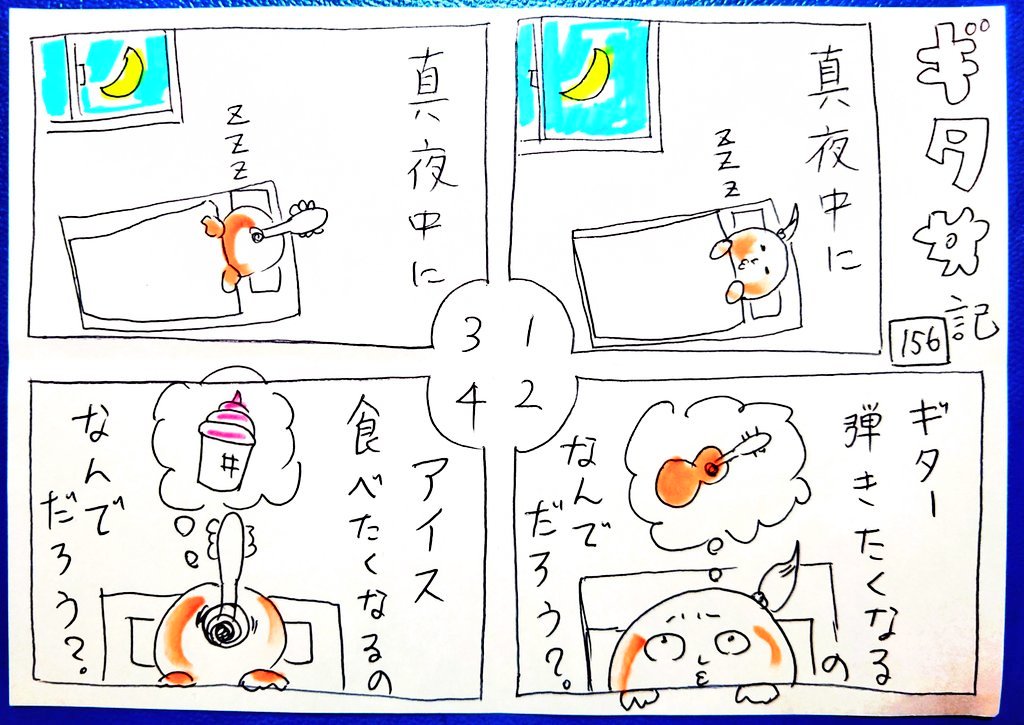 ギタ女記
156
1
真夜中に
zzz
2
ギター
弾きたくなるの
なんで
だろう?。
3
真夜中に
zzz
4
アイス
食べたくなるの
井
なんで
だろう?。